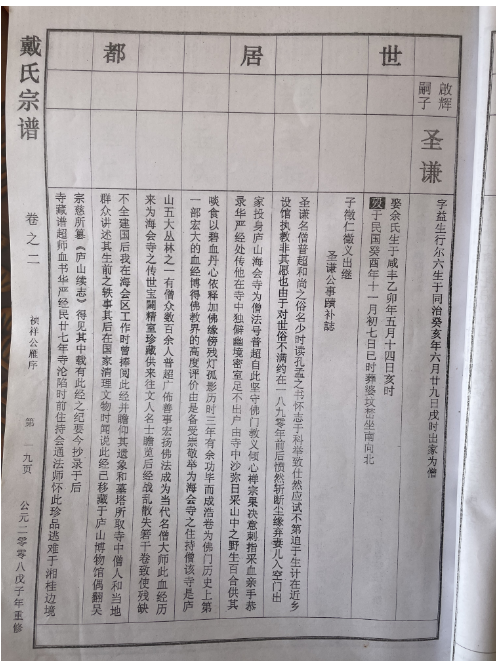 世居都
啟辉
嗣子
圣谦
字益生行尔六生于同治癸亥年六月廿九日戌时出家为僧
娶余氏生于咸丰乙卯年五月十四日亥时
殁于民国癸酉年十一月初七日巳时葬婆坟嵆坐南向北
子徵仁徵义出继
圣谦公事蹟补誌
圣谦名僧普超和尚之俗名少时读孔孟之书怀志于科举致仕然应试不第迫于生计在近乡
设馆执教非其愿也由于对世俗不满约在一八九零年前后愤然斩断尘缘弃妻儿入空门出
家投身庐山海会寺为僧法号普超自此坚守佛门教义倾心禅宗果决意刺指采血亲手恭
录华严经处传他在寺中独僻幽境密室足不出户由寺中沙弥日采山中之野生百合供其
啖食以碧血丹心依释加佛缘傍残灯孤影历时三年有余功毕而成浩卷为佛门历史上第
一部宏大的血经博得佛教界的高度评价由是备受崇敬举为海会寺之住持僧该寺是庐
山五大丛林之一有僧众数百余人普超广佈善事宏扬佛法成为当代名僧大师此血经历
来为海会寺之传世宝闢精室珍藏供来往文人名士瞻览后经战乱散失箬干卷致使残缺
不全建国后我在海会区工作时曾捧阅此经并瞻仰其遗象和墓塔所取寺中僧人和当地
群众讲述其生前之轶事其后在国家清理文物时闻说此经己移藏于庐山博物馆偶翻吴
宗慈所纂《庐山续志》得见其中载有此经之纪要今抄录于后
寺藏谱超师血书华严经民廿七年寺沦陷时前住持会通法师怀此珍品逃难于湘桂边境
戴氏宗谱
卷之二
祯祥公雁序
第九页
公元二零零八戊子年重修